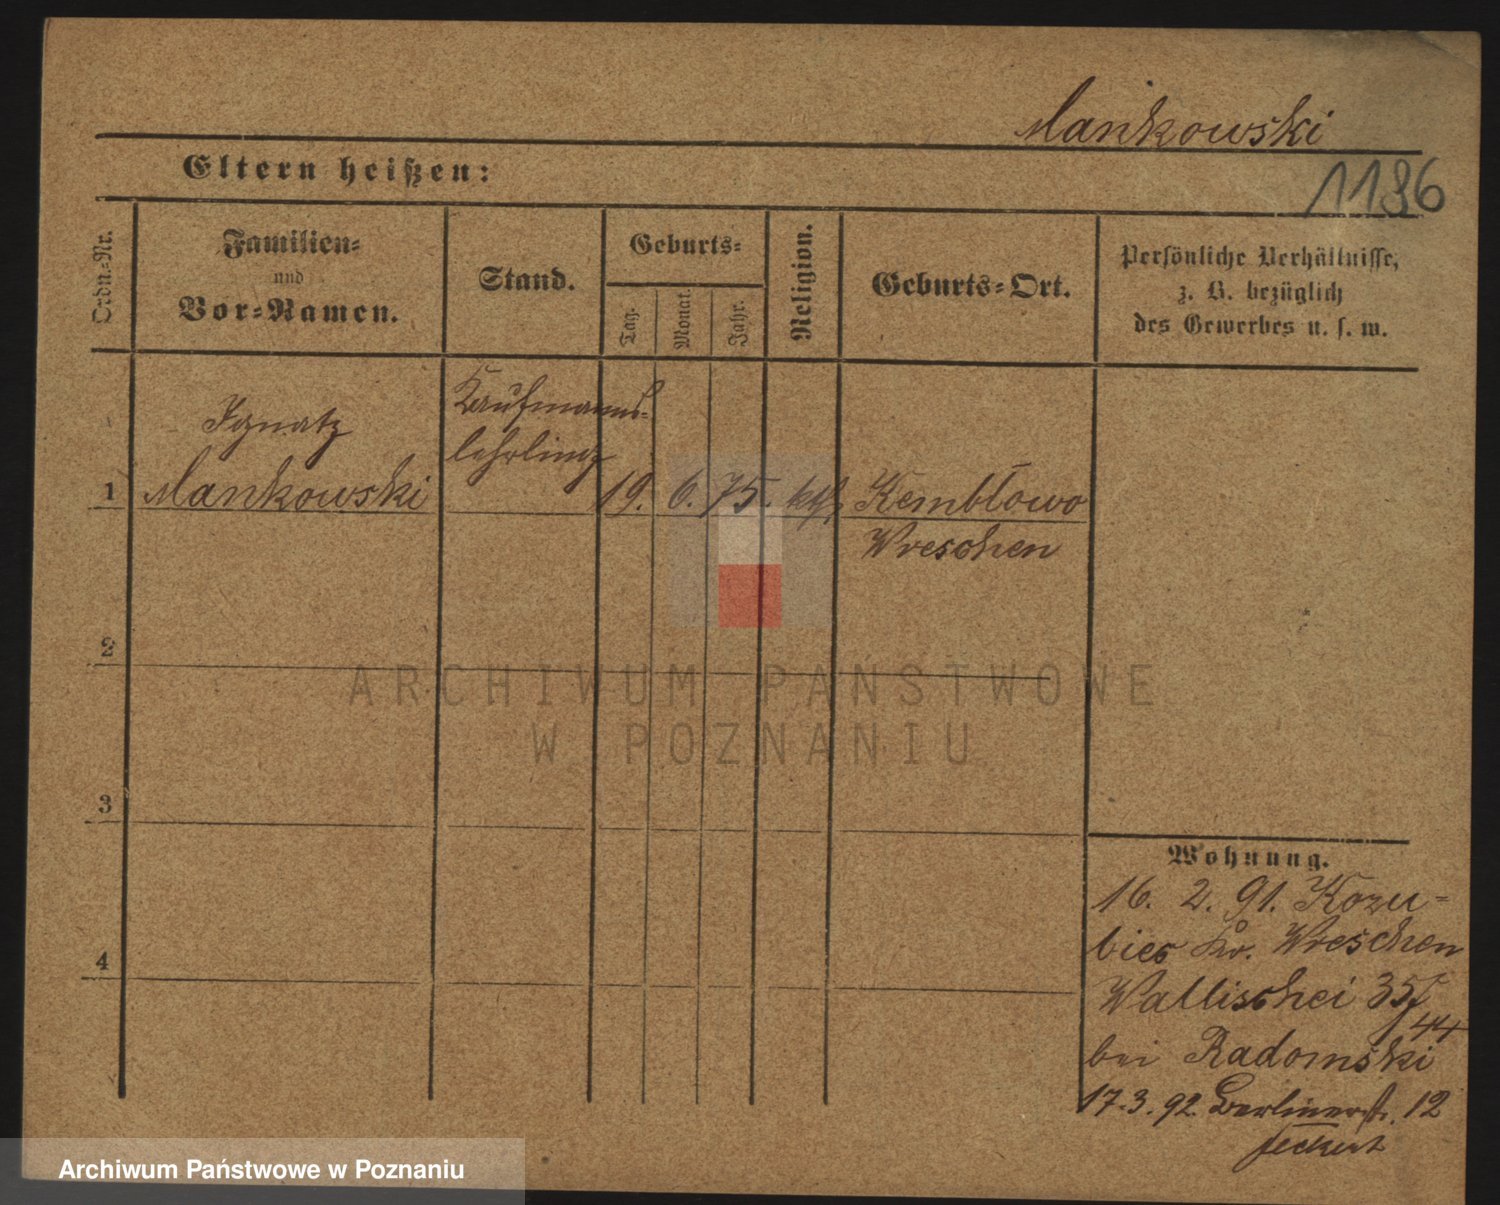 Mankowski
1186
Eltern heißen:
Ordn.-Nr.
Familien-
und
Vor-Namen.
Stand.
Geburts-
Tag.
Monat.
Jahr.
Religion.
Geburts-Ort.
Persönliche Verhältnisse,
z. B. bezüglich
des Gewerbes u. s. w.
Ignatz
Kaufmanns-
lehrling
1 Mankowski 19. 6. 75. kth. Kembłowo
Wreschen
2
ARCHIWUM PAŃSTWOWE
W POZNANIU
3
Wohnung.
16. 2. 91. Kozu-
biec Kr. Wreschen
4
Wallischei 35/
44
bei Radomski
17.3.92. Berlinerstr. 12
Archiwum Państwowe w Poznaniu